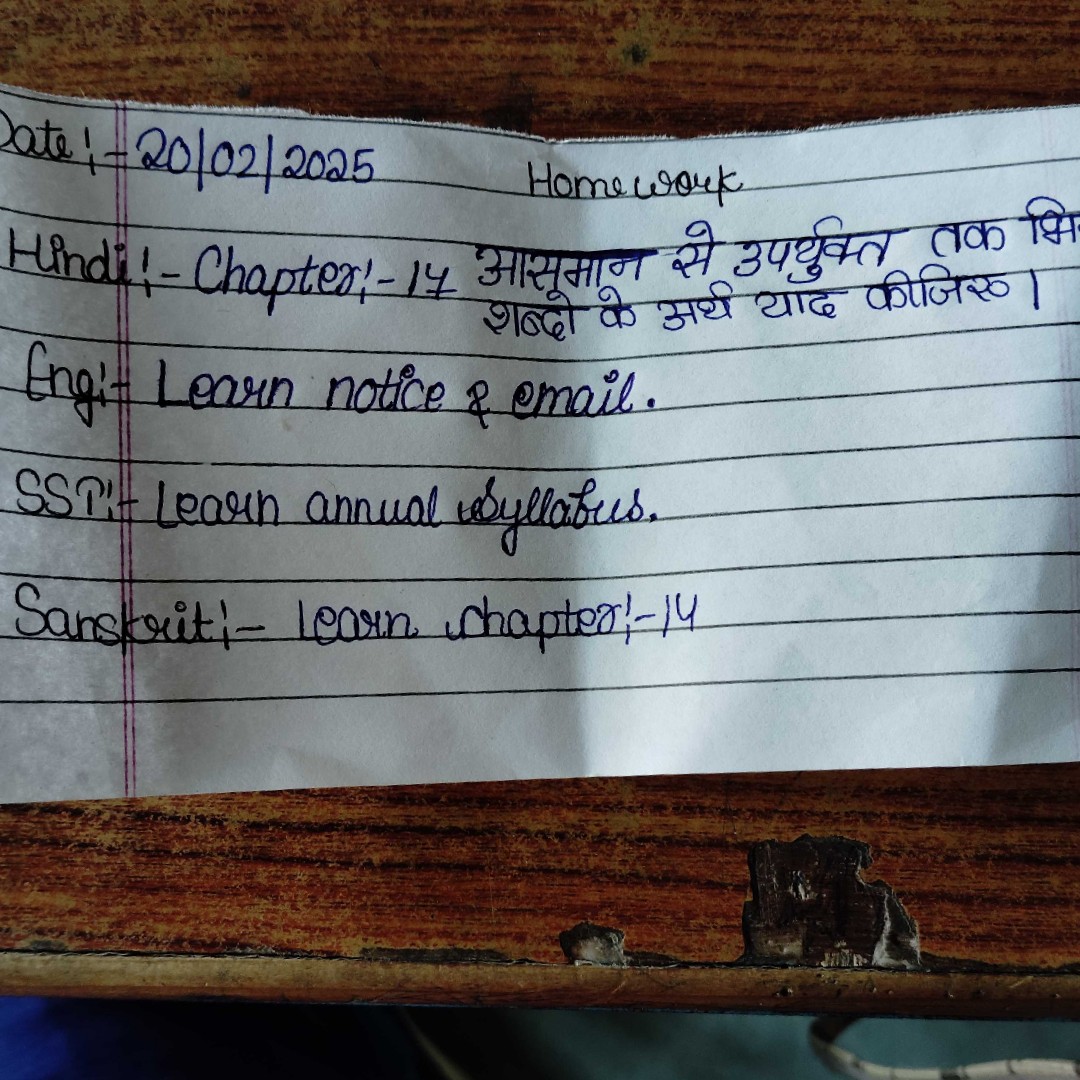 Date:- 20/02/2025
Homework
Hindi:- Chapter:- 14 आसमान से उपर्युक्त तक
शब्दो के अर्थ याद कीजिए।
Eng:- Learn notice & email.
SST:- Learn annual syllabus.
Sanskrit:- learn chapter:-14